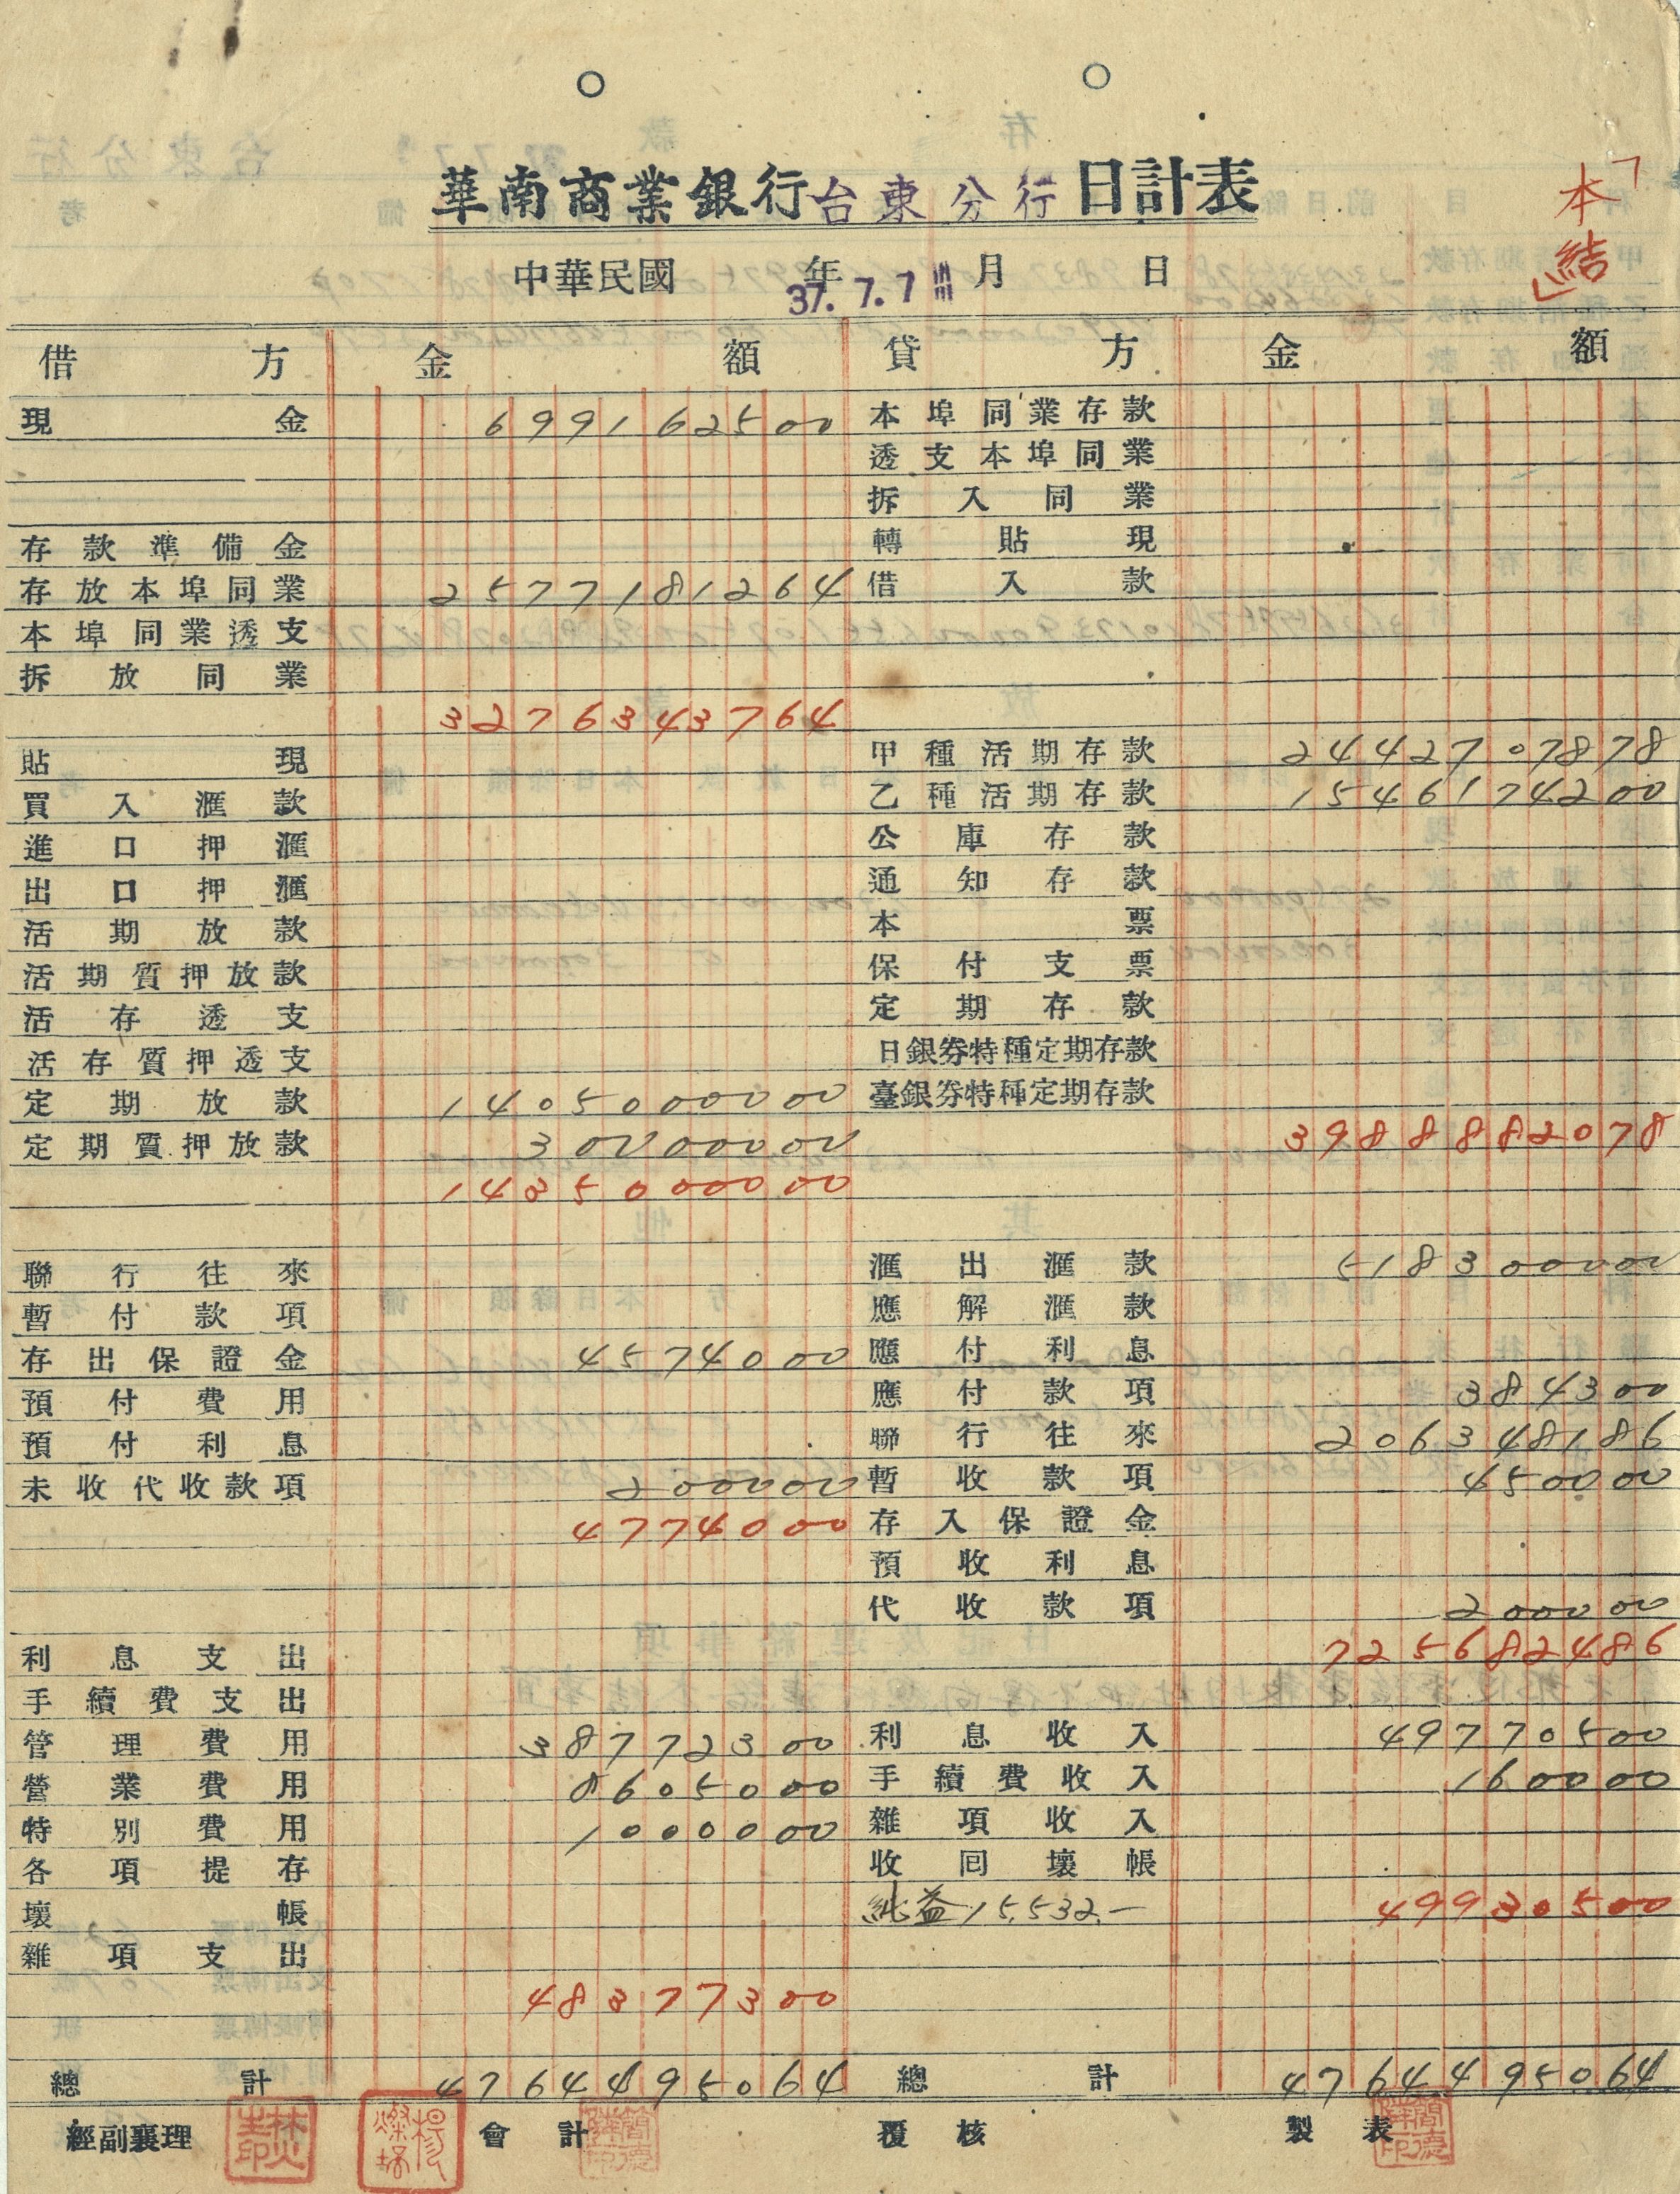 華南商業銀行台東分行日計表
「本結」
中華民國 年 月 日
37. 7. 7
借方 金額 貸方 金額
現金 699162500 本埠同業存款
透支本埠同業
拆入同業
存款準備金 轉貼現
存放本埠同業 2577181264 借入款
本埠同業透支
拆放同業
3276343764
貼現 甲種活期存款 2442707878
買入滙款 乙種活期存款 1546174200
進口押滙 公庫存款
出口押滙 通知存款
活期放款 本票
活期質押放款 保付支票
活存透支 定期存款
活存質押透支 日銀券特種定期存款
定期放款 1405000000 臺銀券特種定期存款
定期質押放款 30000000 3988882078
1435000000
聯行往來 滙出滙款 518300000
暫付款項 應解滙款
存出保證金 4574000 應付利息
預付費用 應付款項 384300
預付利息 聯行往來 206348186
未收代收款項 200000 暫收款項 450000
4774000 存入保證金
預收利息
代收款項 200000
利息支出 725682486
手續費支出
管理費用 38772300 利息收入 49770500
營業費用 8605000 手續費收入 160000
特別費用 1000000 雜項收入
各項提存 收回壞帳
壞帳 純益15,532.— 49930500
雜項支出
48377300
總計 4764495064 總計 4764495064
經副襄理 會計 覆核 製表